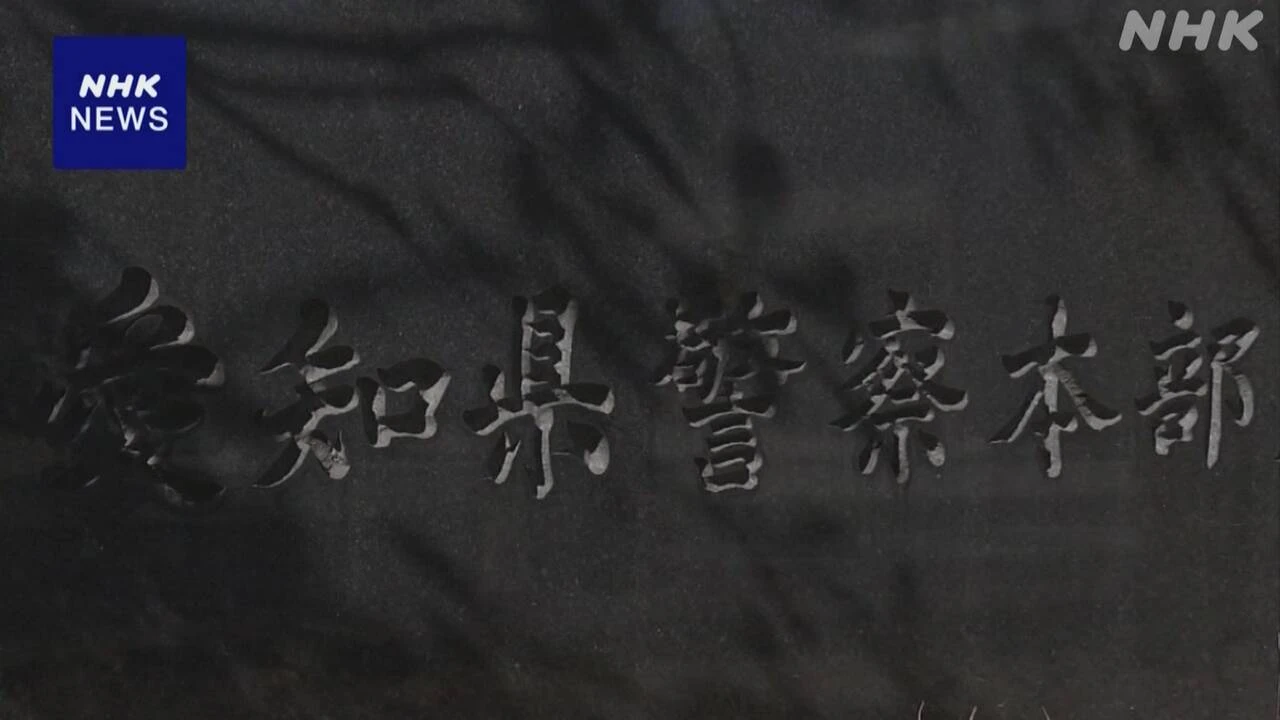 NHK
NHK
NEWS
愛知県警察本部